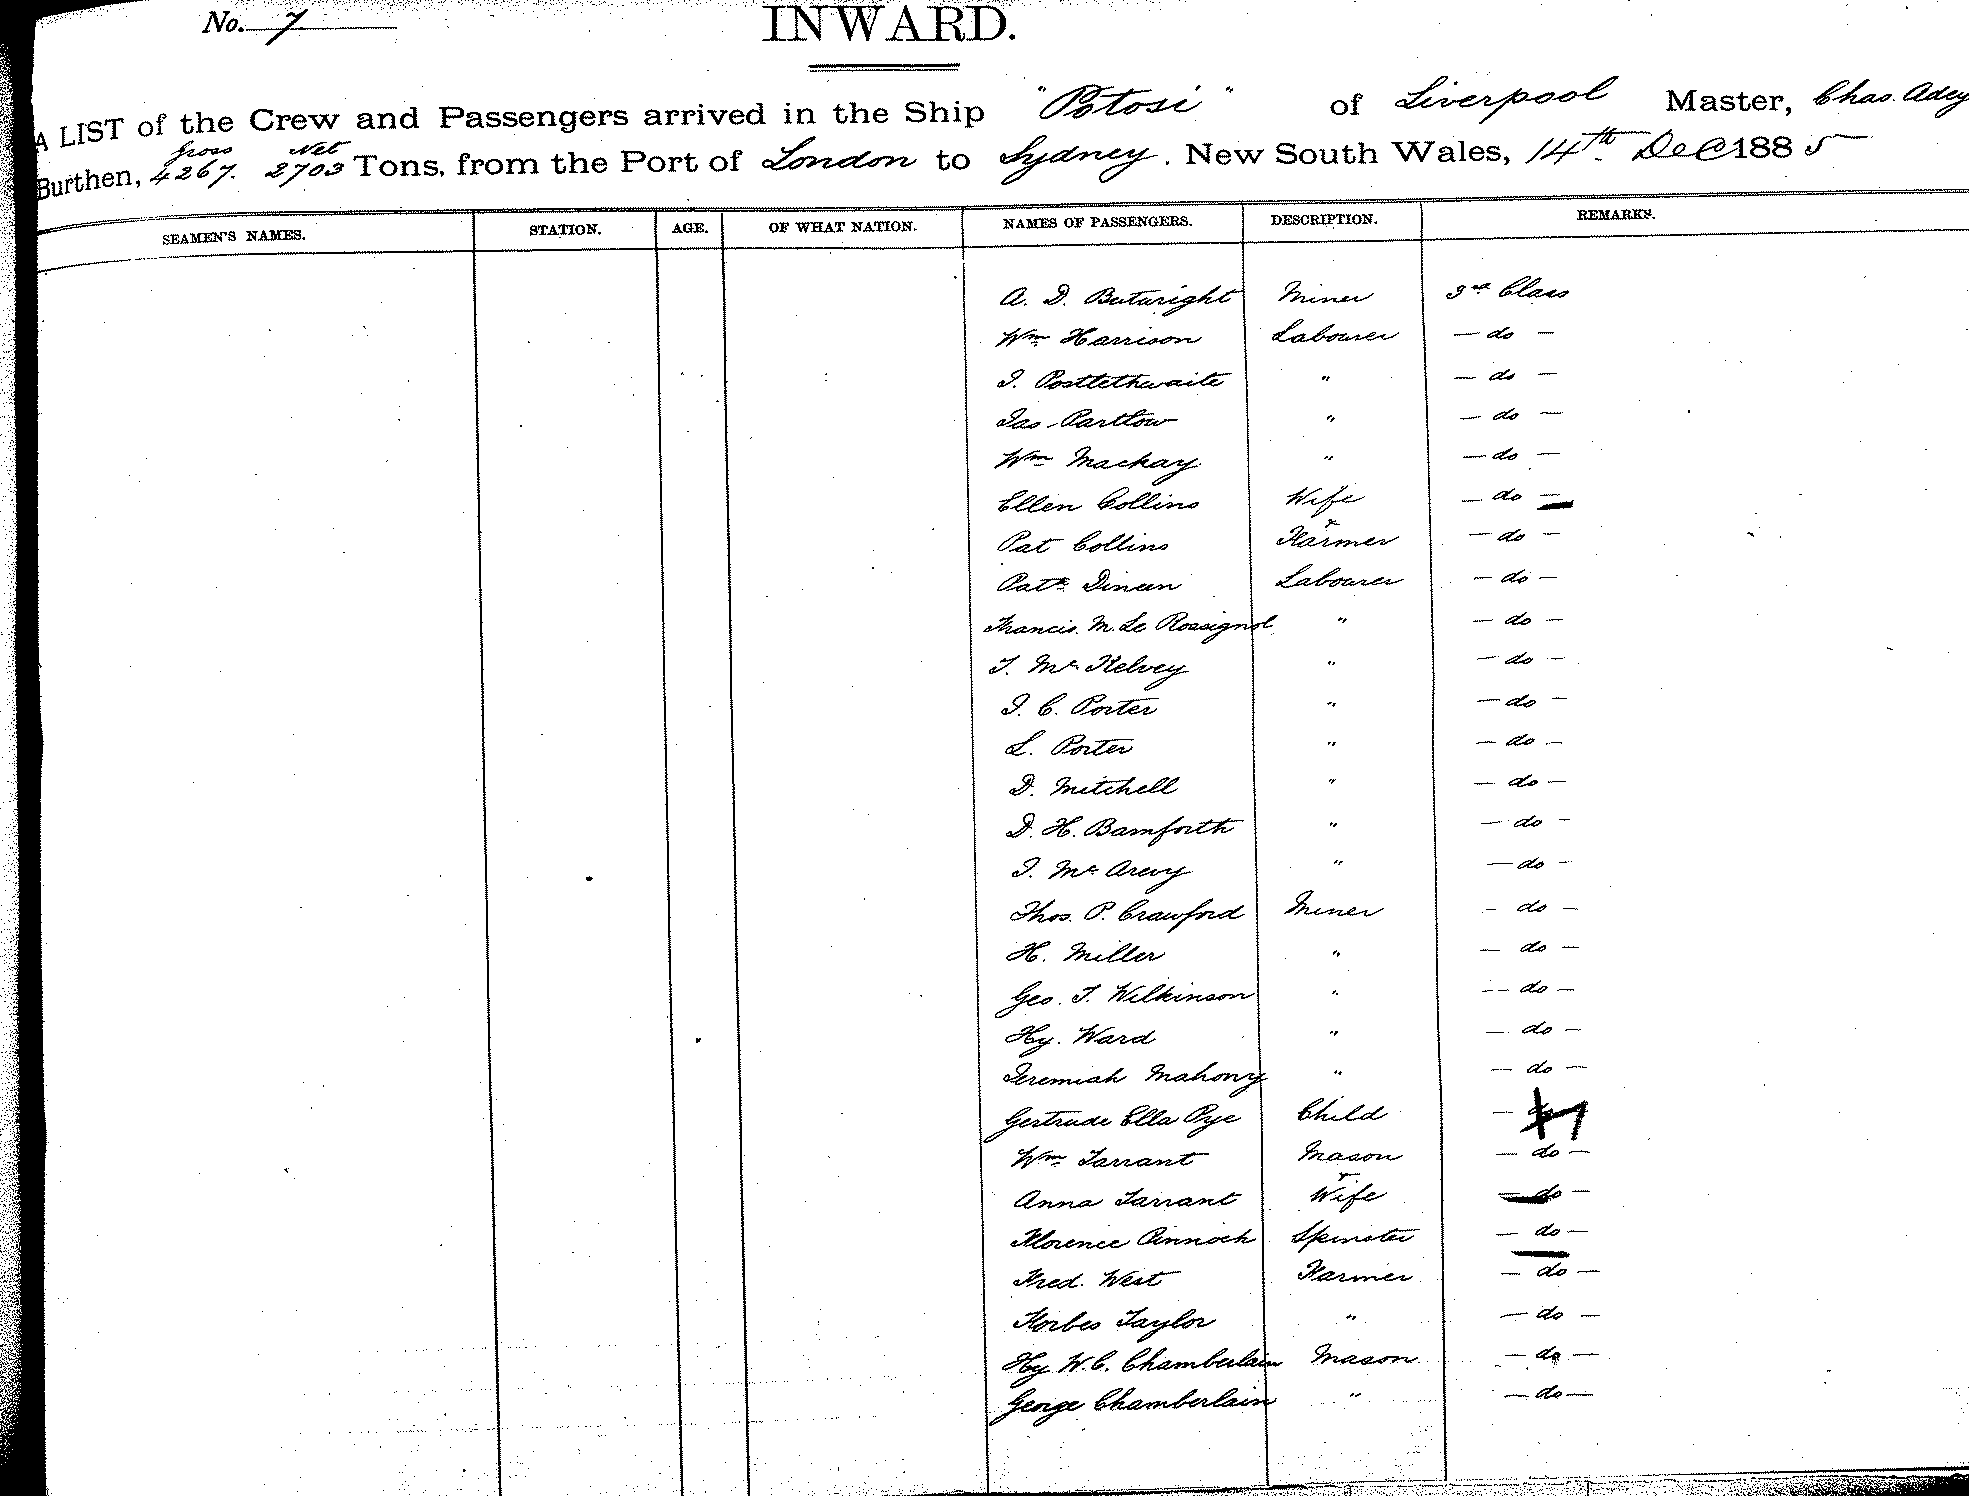 No. 7
INWARD.
A LIST of the Crew and Passengers arrived in the Ship "Potosi" of Liverpool Master, Chas. Adey
Burthen, Gross 4267. Net 2703 Tons, from the Port of London to Sydney. New South Wales, 14th Dec 1885
SEAMEN'S NAMES. STATION. AGE. OF WHAT NATION. NAMES OF PASSENGERS. DESCRIPTION. REMARKS.
A. D. Butwright Miner 3rd Class
Wm Harrison Labourer — do —
J. Postlethwaite " — do —
Jas Partlow " — do —
Wm Mackay " — do —
Ellen Collins Wife — do —
Pat Collins Farmer — do —
Patk Dineen Labourer — do —
Francis. M. Le Rossignol " — do —
T. Mc Kelvey " — do —
J. C. Porter " — do —
L. Porter " — do —
D. Mitchell " — do —
D. H. Bamforth " — do —
J. Mc Arevy " — do —
Thos. P. Crawford Miner — do —
H. Miller " — do —
Geo. T. Wilkinson " — do —
Hy. Ward " — do —
Jeremiah Mahony " — do —
Gertrude Ella Pye Child — do
Wm Tarrant Mason — do —
Anna Tarrant Wife — do —
Florence Annoch Spinster — do —
Fred. West Farmer — do —
Forbes Taylor " — do —
Hy W. C. Chamberlain Mason — do —
George Chamberlain " — do —